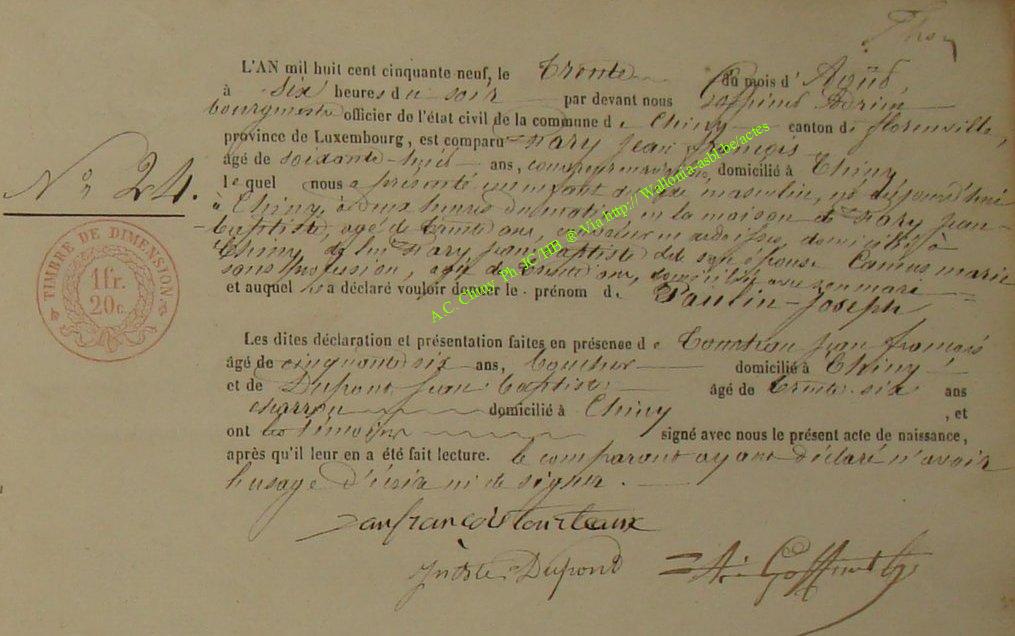 N° 24.
TIMBRE DE DIMENSION
1 fr.
20 c.
L'AN mil huit cent cinquante neuf, le Trente du mois d'Août,
à Six heures du soir par devant nous Goffinet Adrien
bourgmestre officier de l'état civil de la commune de Chiny canton de florenville,
province de Luxembourg, est comparu Hary jean françois
âgé de soixante-huit ans, domicilié à Chiny,
lequel nous a présenté un enfant du sexe masculin, né aujourd'hui
à Chiny, à deux heures du matin en la maison de Hary jean-
baptiste, âgé de trente ans, couvreur en ardoises, domicilié à
Chiny, de lui Hary jean baptiste et de son épouse Camus marie
sans profession, âgée de trente ans, domiciliée avec son mari
et auquel il a déclaré vouloir donner le prénom de Paulin-Joseph
Les dites déclaration et présentation faites en présence de Tourteau jean françois
âgé de cinquante six ans, domicilié à Chiny
et de Dupont jean baptiste âgé de trente-six ans
charron domicilié à Chiny, et
ont les témoins signé avec nous le présent acte de naissance,
après qu'il leur en a été fait lecture. le comparant ayant déclaré n'avoir
l'usage d'écrire ni de signer.
Jean françois tourteaux
Dupond
A. Goffinet
A.C. Chiny Ph JC/HB @ Via http://Wallonia-asbl.be/actes